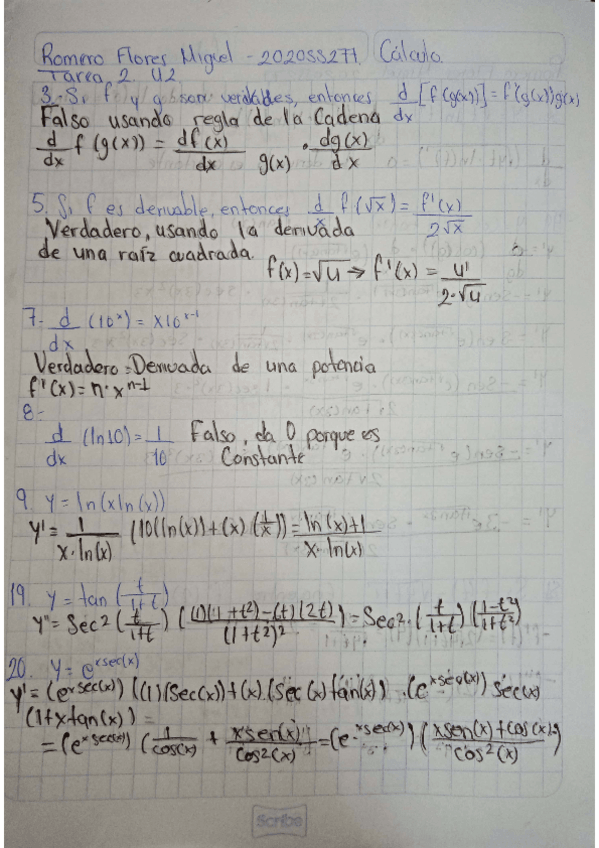 Romero Flores Miguel - 202055271 Cálculo
Tarea 2 U2
3.- Si f y g son derivables, entonces d/dx [f(g(x))] = f'(g(x)) g'(x)
Falso usando regla de la Cadena
d/dx f(g(x)) = df(x)/dx g(x) · dg(x)/dx
5. Si f es derivable, entonces d/x f(√x) = f'(x)/2√x
Verdadero, usando la derivada
de una raíz cuadrada.
f(x) = √u → f'(x) = u'/2·√u
7.- d/dx (10^x) = x10^(x-1)
Verdadero = Derivada de una potencia
f'(x) = n·x^(n-1)
8.-
d/dx (ln10) = 1/10 Falso, da 0 porque es
Constante
9. y = ln(xln(x))
y' = 1/x·ln(x) (10(ln(x)) + (x)(1/x)) = ln(x)+1/x·ln(x)
19. y = tan(t/1+t)
y' = Sec²(t/1+t) ((1)(1+t²)-(t)(2t)/(1+t²)²) = Sec²·(t/1+t)(1-t²/1+t²)
20. y = e^(xsec(x))
y' = (e^(xsec(x))) ((1)(Sec(x)) + (x)·(Sec(x) tan(x)) · (e^(xsec(x))) sec(x)
(1+xtan(x)) =
= (e^(xsec(x))) (1/cos(x) + xsen(x)/cos2(x) = (e^(xsec(x))) (xsen(x)+cos(x)/cos²(x))
Scribe